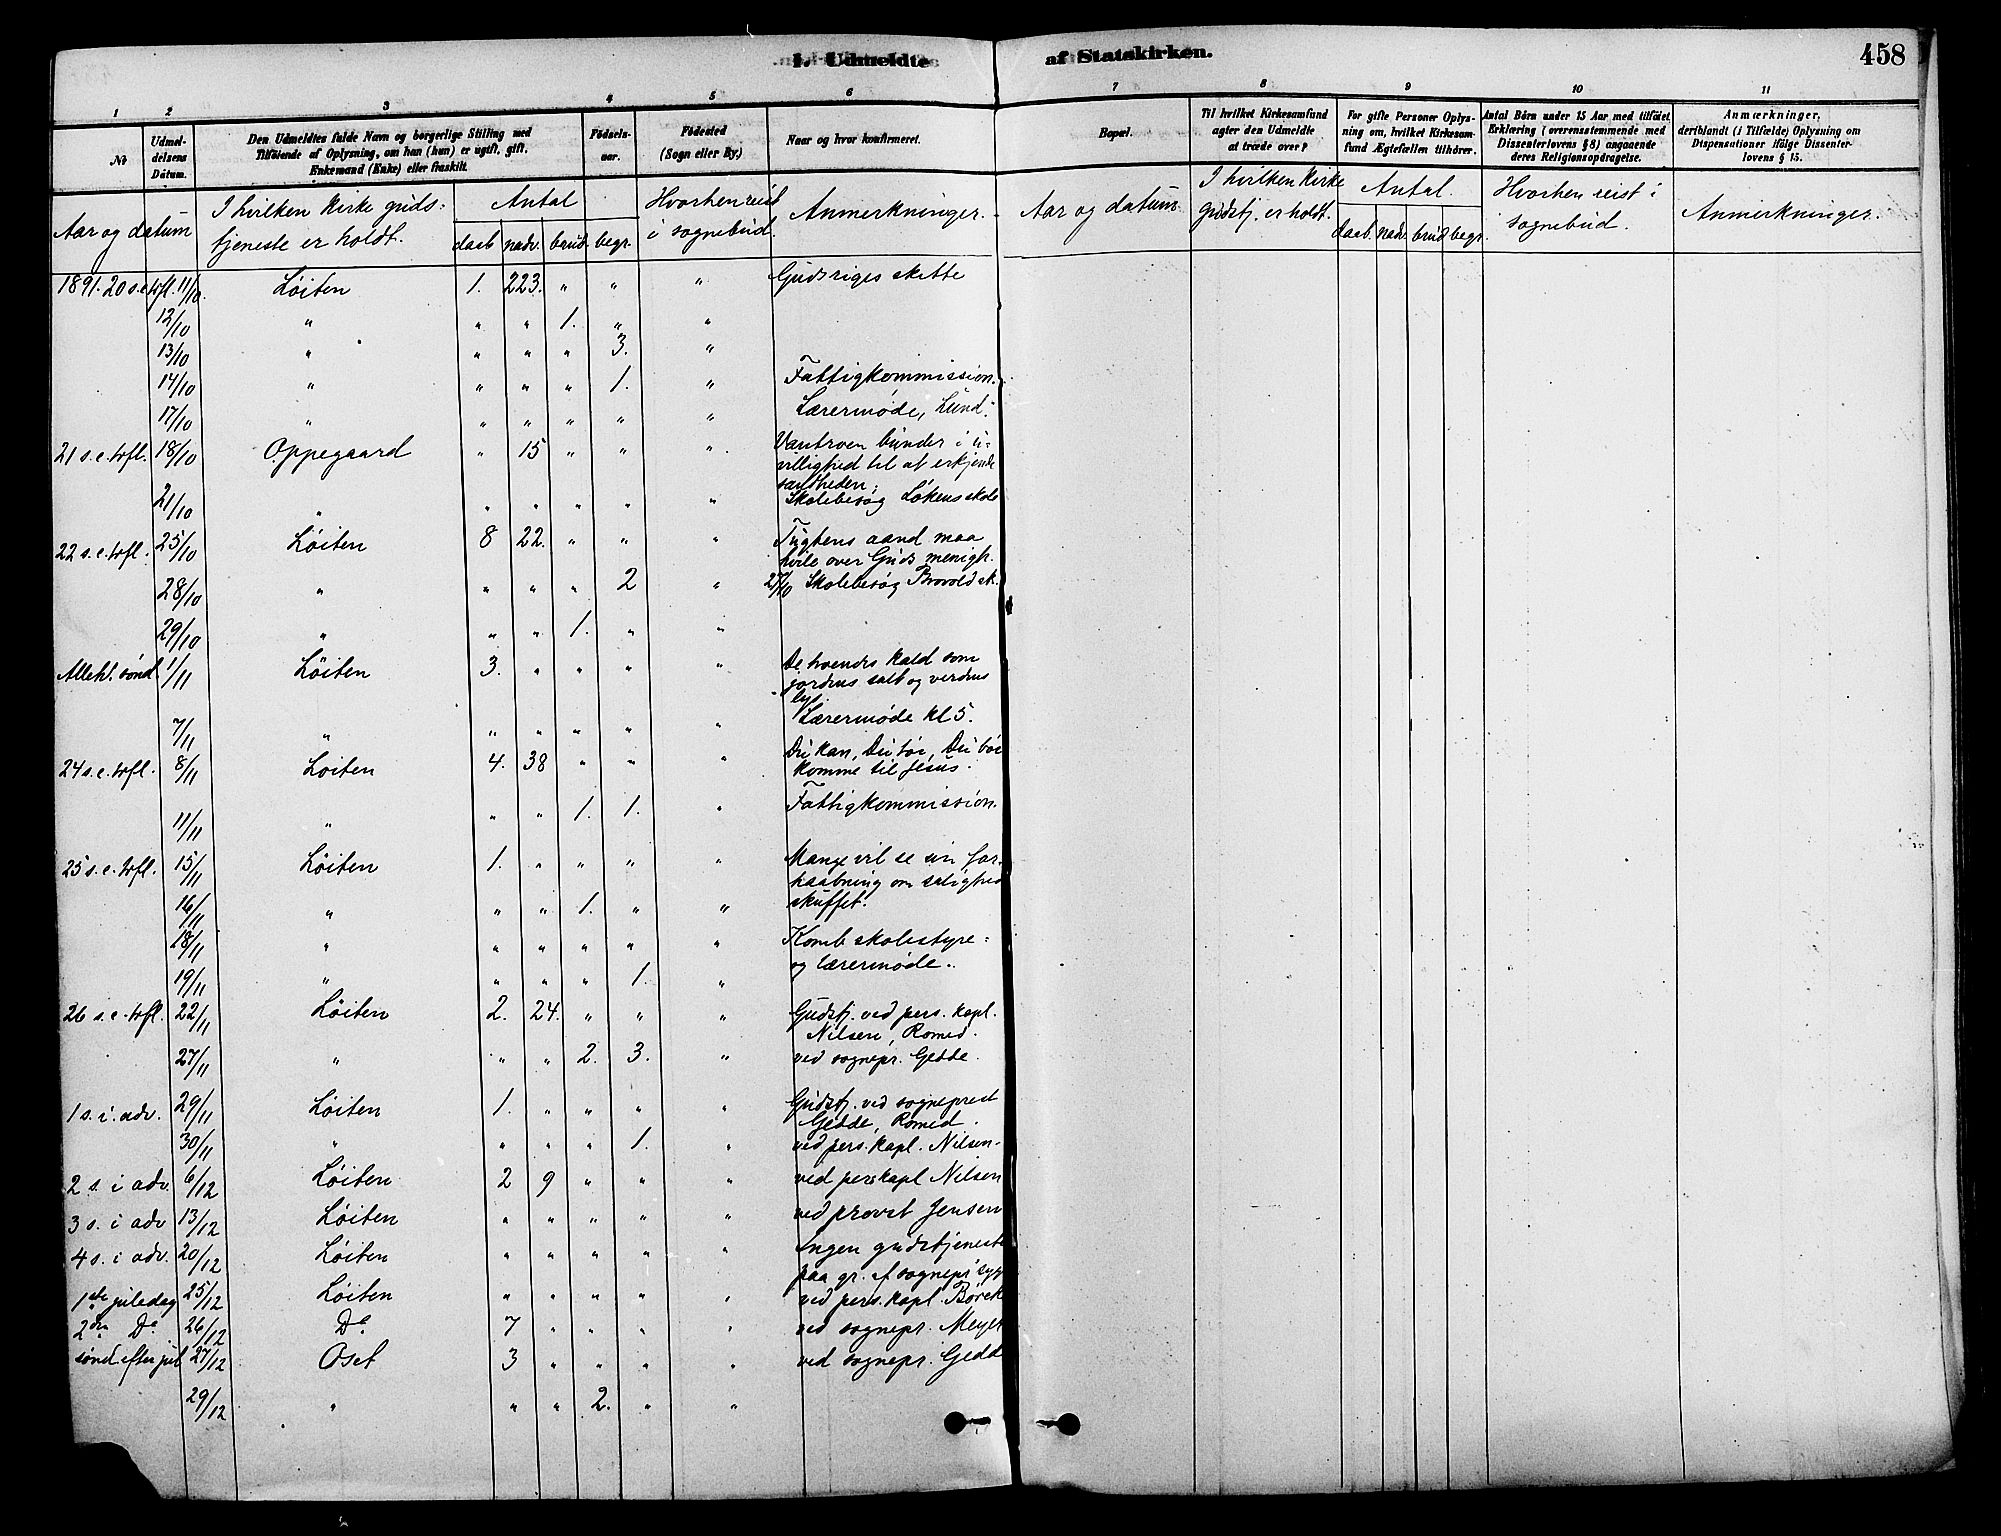 1. Udmeldte af Statskirken. 458
1 2 3 4 5 6 7 8 9 10 11
No
Udmeldelsens Datum.
Den Udmeldtes fulde Navn og borgerlige Stilling med
Tilföiende af Oplysning, om han (hun) er ugift, gift,
Enkemand (Enke) eller fraskilt.
Födselsaar.
Födested
(Sogn eller By.)
Naar og hvor konfirmeret.
Bopæl.
Til hvilket Kirkesamfund
agter den Udmeldte
at træde over?
For gifte Personer Oplysning
om, hvilket Kirkesamfund
Ægtefællen tilhörer.
Antal Börn under 15 Aar med tilföiet
Erklæring (overensstemmende med
Dissenterlovens § 8) angaaende
deres Religionsopdragelse.
Anmærkninger,
deriblandt (i Tilfælde) Oplysning om
Dispensationer ifölge Dissenterlovens
§ 15.
Aar og datum
I hvilken kirke gudstjeneste er holdt.
Antal
daab nadv. brud. begr.
Hvorhen reist i sognebud.
Anmerkninger.
Aar og datum
I hvilken kirke gudstj. er holdt.
Antal
daab. nadv. brud begr.
Hvorhen reist i sognebud.
Anmerkninger.
1891. 20 s. e. trfl. 11/10. Löiten 1. 223. " " " Gudsriges skatte
12/10 " " " 1. " "
13/10 " " " " 3. "
14/10 " " " " 1. " Fattigkommission.
17/10 " " " " " " Lærermøde, Lund.
21 s. e. trfl. 18/10 Oppegaard " 15 " " " Vantroen bunder i u-
villighed til at erkjende
sandheden.
21/10 " " " " " " Skolebesøg Løkens skole
22 s. e. trfl. 25/10 Löiten 8 22. " " " Tugtens aand maa
hvile over Guds menigh.
28/10 " " " " 2 " 27/10 Skolebesøg Brovold sk.
29/10 " " " 1. " "
Allehl. sönd. 1/11 Löiten 3. " " " " De troendes kald som
jordens salt og verdens
lys
7/11 " " " " " " Lærermøde kl 5.
24 s. e. trfl. 8/11 Löiten 4. 38 " " " Du kan, Du tör, Du bör
komme til Jesus.
11/11 " " " 1. 1. " Fattigkommission.
25 s. e. trfl. 15/11 Löiten 1. " " " " Mange vil se sin for-
haabning om salighed
skuffet.
16/11 " " " 1. " "
18/11 " " " " " " Komb skolestyre=
og lærermøde.
19/11 " " " " 1. "
26 s. e. trfl. 22/11 Löiten 2. 24. " " " Gudstj. ved pers. kapl.
Nilsen, Romed.
27/11 " " " 2. 3. " ved sognepr. Gedde.
1 s. i. adv. 29/11 Löiten 1. " " " " Gudstj. ved sogneprest
Gedde, Romed.
30/11 " " " " 1. " ved pers. kapl. Nilsen.
2 s. i adv. 6/12 Löiten 2 9 " " " ved perskapl Nilsen
3 s. i adv 13/12 Löiten " " " " " ved provst Jensen
4 s. i adv. 20/12 Löiten " " " " " Ingen gudstjeneste
paa gr. af sognepr syg
1ste juledag 25/12 Löiten " " " " " ved pers. kapl. Börck
2den Do 26/12 Do 7 " " " " ved sognepr. Meyer
sönd. efter jul 27/12 Oset 3 " " " " ved sognepr. Gedde
29/12 " " " 2. " "